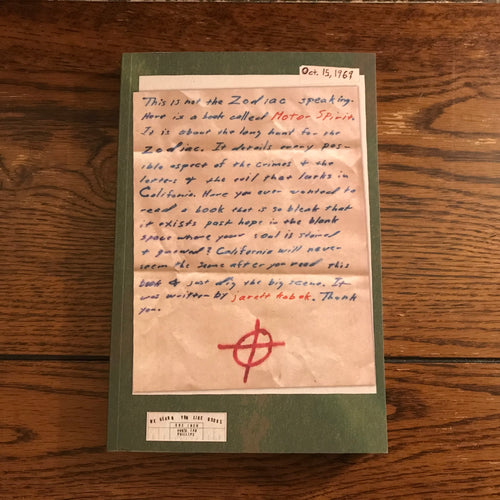 Oct. 15, 1969
This is not the Zodiac speaking.
Here is a book called Motor Spirit.
It is about the long hunt for the
Zodiac. It details every pos-
sible aspect of the crimes & the
letters & the evil that lurks in
California. Have you ever wanted to
read a book that is so bleak that
it exists past hope in the blank
space where your soul is stored
& gnawed? California will never
seem the same after you read this
book & just dig the big scene. It
was written by jarett kobek. Thank
you.
WE HEARD YOU LIKE BOOKS